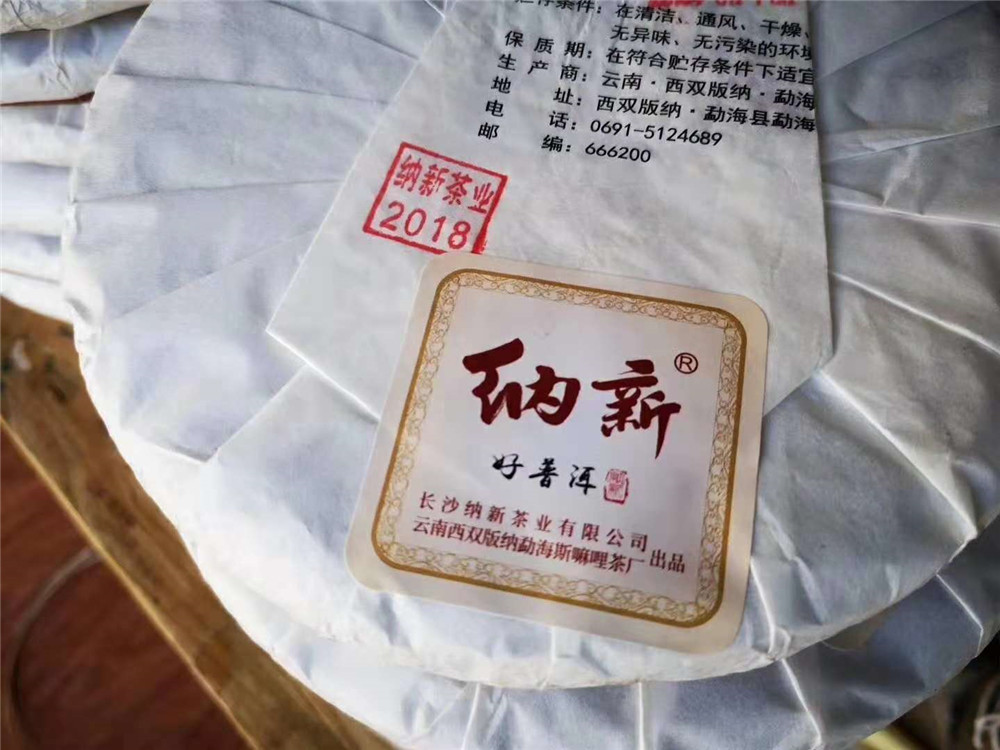 贮存条件：在清洁、通风、干燥、
无异味、无污染的环境
保质期：在符合贮存条件下适宜
生产商：云南·西双版纳·勐海
地址：西双版纳·勐海县勐海
电话：0691-5124689
邮编：666200
纳新茶业
2018
纳新®
好普洱
长沙纳新茶业有限公司
云南西双版纳勐海斯嘛哩茶厂出品